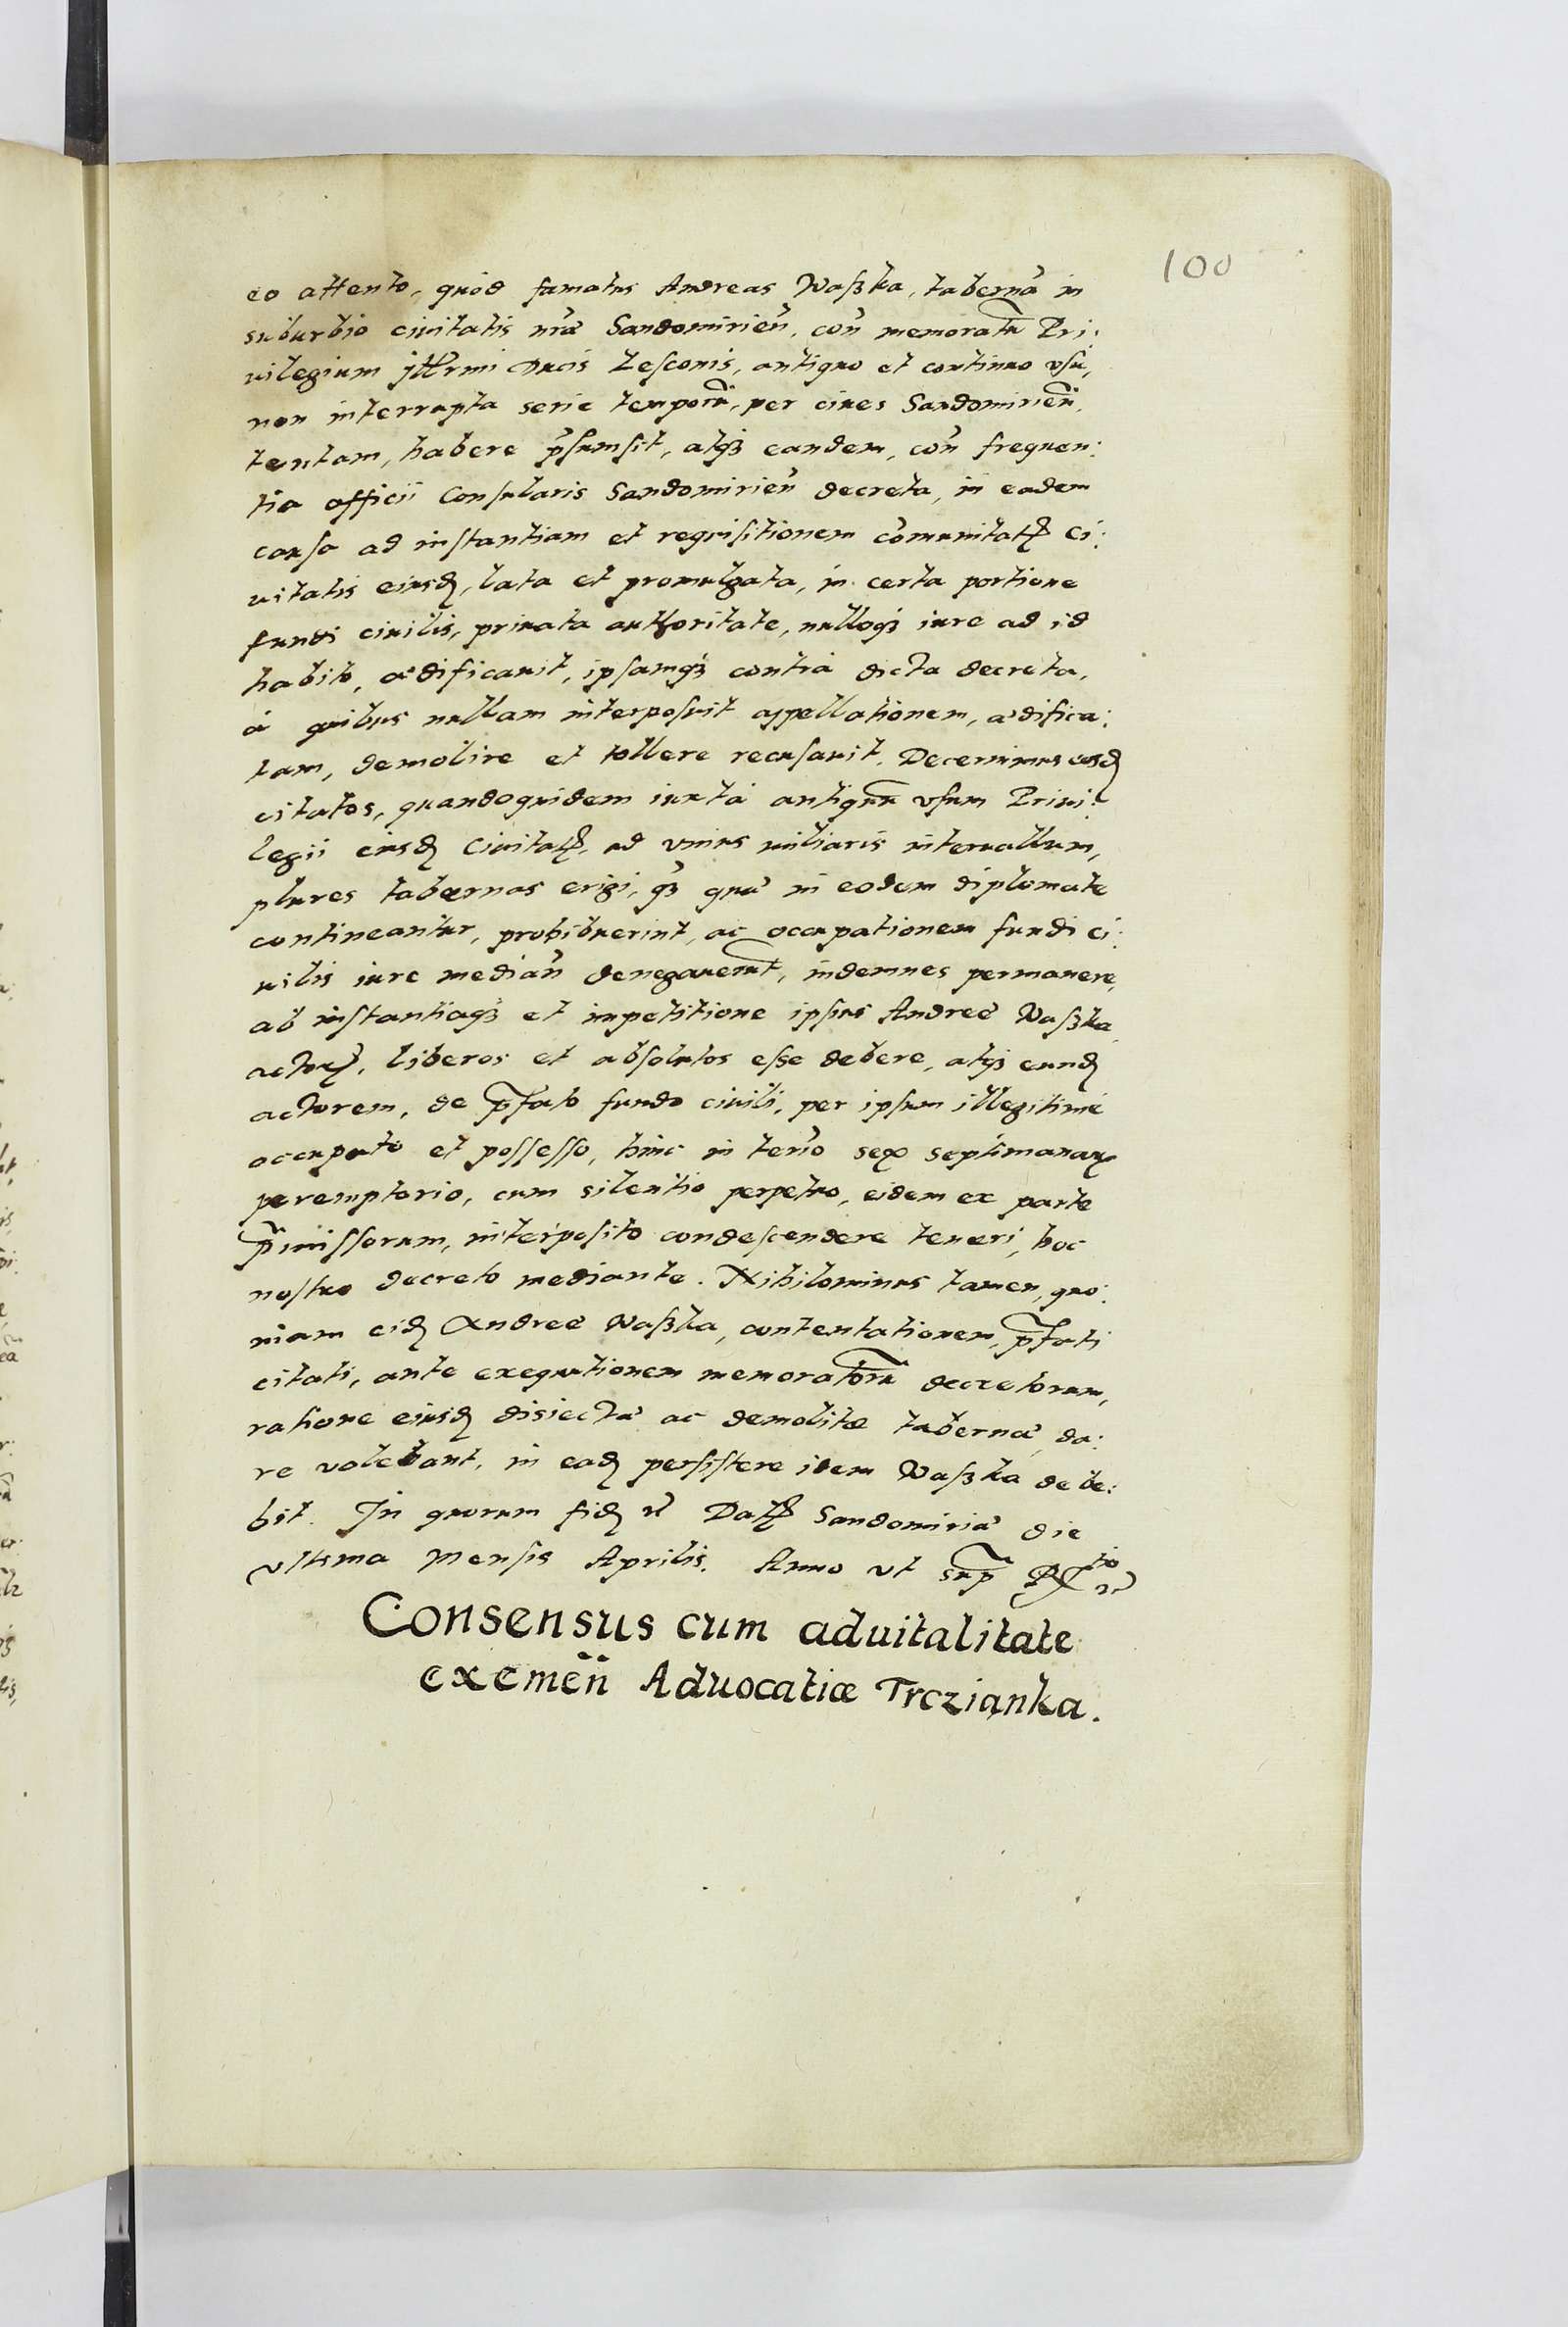 100
eo attento, quòd famatus Andreas Waßka, tabernã in
suburbio ciuitatis nrã Sandomirien̄, con̄ memoratũ Pri:
uilegium Jllrmi Ducis Lesconis, antiquo et continuo vſu,
non interrupta serie temporũ, per ciues Sandomirien̄.
tentam, habere p̃ſumſit, atqꝫ eandem, con̄ frequen:
tia officii Conſularis Sandomirien̄ decreta, in eadem
cauſa ad inſtantiam et requiſitionem cõmunitatꝭ Ci:
uitatis eiusd, lata et promulgata, in certa portione
fundi ciuilis, priuata authoritate, nulloqꝫ iure ad id
habito, ædificauit, ipſamqꝫ contrà dicta decreta,
à quibus nullam interpoſuit appellationem, ædifica:
tam, demolire et tollere recuſauit. Decernimus eosd
citatos, quandoquidem iuxtà antiquũ vſum Priui:
legii eiusd Ciuitatꝭ, ad vnius miliaris interuallum,
plures tabernas erigi, qꝫ quæ in eodem diplomate
contineantur, prohibuerint, ac occupationem fundi ci:
uilis iure median̄ denegauerũt, indemnes permanere,
ab inſtantiaqꝫ et impetitione ipſius Andreæ Waßka
actorꝭ, liberos et abſolutos eſse debere, atqꝫ eund
actorem, de p̃fato fundo ciuili, per ipſum illegitimè
occupato et poſſeſſo, hinc in ter̃o sex septimanarꝝ
peremptorio, cum silentio perpetuo, eidem ex parte
p̃miſſorum, interpoſito condeſcendere teneri, hoc
noſtro decreto mediante. Nihilominus tamen, quo:
niam eid Andreæ Waßka, contentationem, p̃fati
citati, ante exequutionem memoratorũ decretorum,
ratione eiusd disiectæ ac demolitæ tabernæ, da:
re volebant, in ead perſiſtere idem Waßka debe:
bit. Jn quorum fid ꝛc̃ Datꝭ Sandomiriæ die
vltima Mensis Aprilis. Anno vt sup̃
Consensus cum aduitalitate
exemen̄ Aduocatiæ Trczianka.